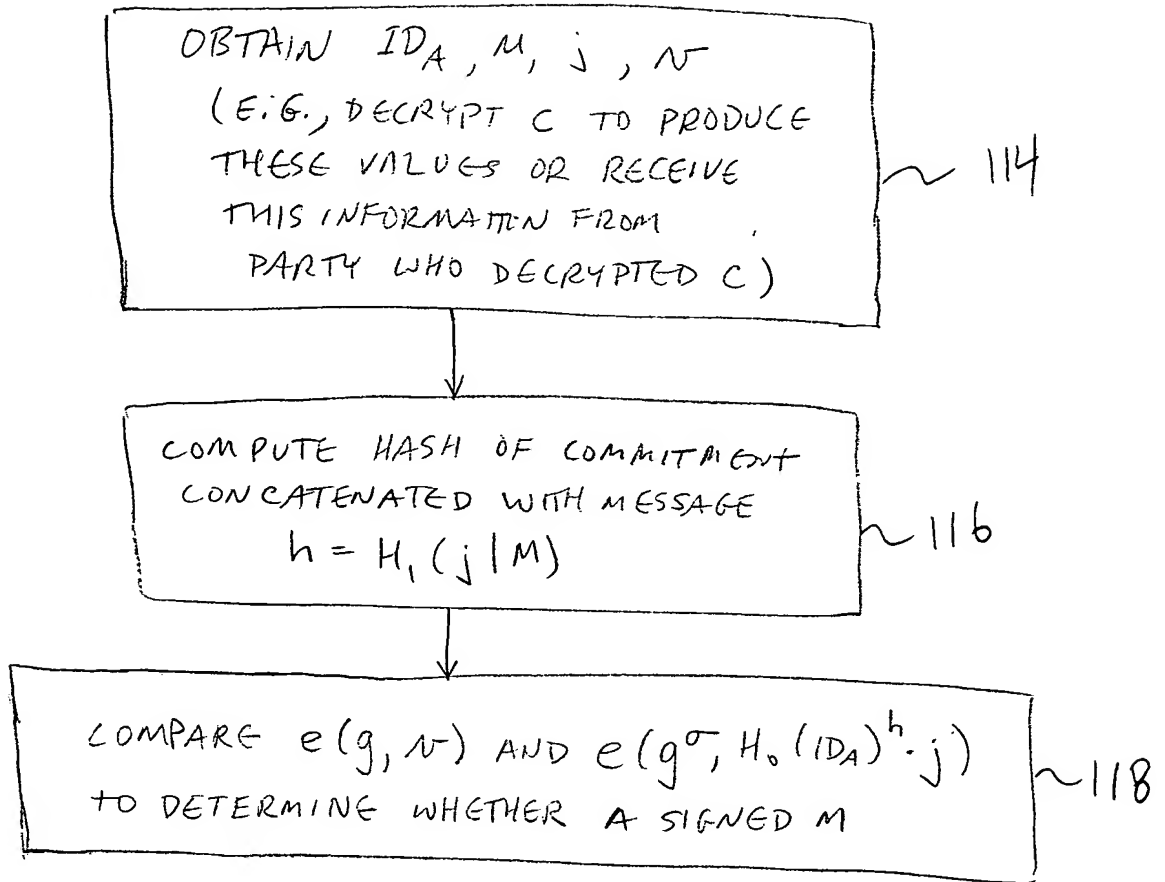 OBTAIN ID_A, M, j, v
(E.G., DECRYPT C TO PRODUCE
THESE VALUES OR RECEIVE
THIS INFORMATION FROM
PARTY WHO DECRYPTED C)
114
COMPUTE HASH OF COMMITMENT
CONCATENATED WITH MESSAGE
h = H₁ (j | M)
116
COMPARE e(g, v) AND e(g^σ, H₀(ID_A)^h · j)
TO DETERMINE WHETHER A SIGNED M
118